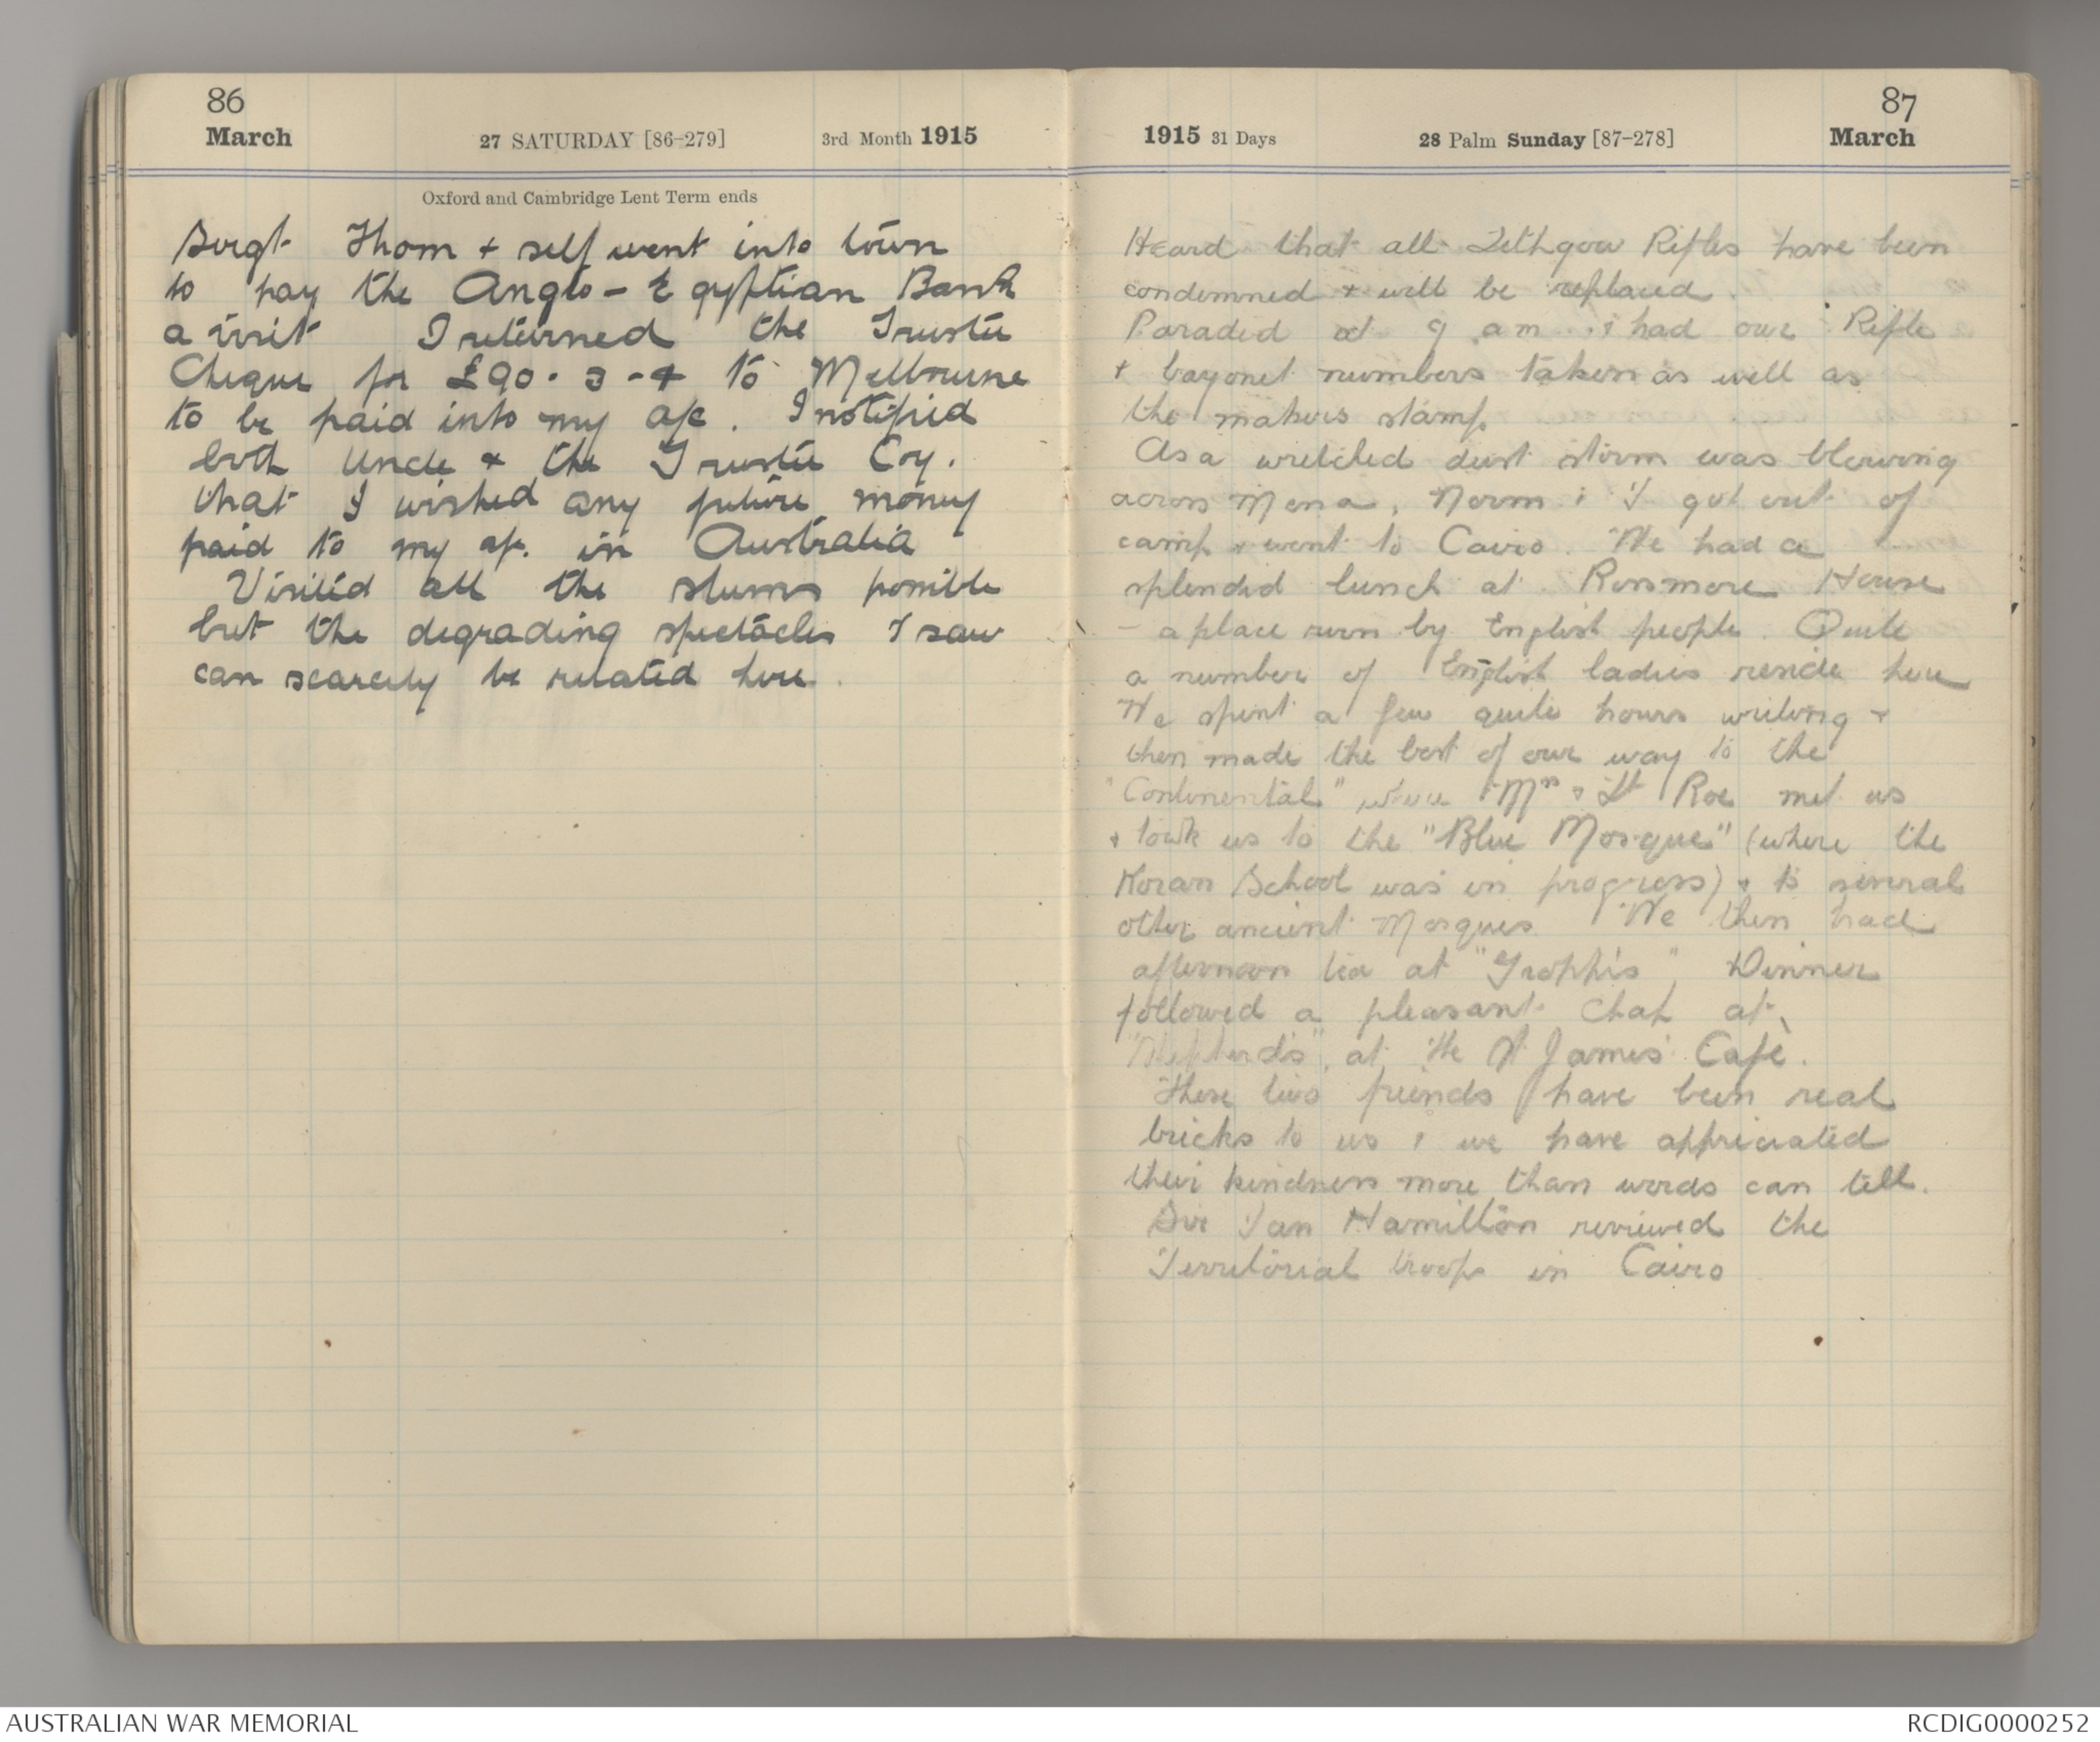 86
March
27 SATURDAY [86–279]
3rd Month 1915
Oxford and Cambridge Lent Term ends
Sergt Thom + self went into town
to pay the Anglo-Egyptian Bank
a visit I returned the Trustee
Cheque for £90-3-4 to Melbourne
to be paid into my a/c. I notified
both Uncle + the Trustee Coy.
that I wished any future money
paid to my a/c. in Australia
Visited all the slums possible
but the degrading spectacles I saw
can scarcely be related here.
87
1915 31 Days
28 Palm Sunday [87–278]
March
Heard that all Lithgow Rifles have been
condemned + will be replaced.
Paraded at 9 am. & had our Rifle
+ bayonet numbers taken as well as
the makers stamp.
As a wretched dust storm was blowing
across Mena, Norm & I got out of
camp + went to Cairo. We had a
splendid lunch at Rossmore House
- a place run by English people. Quite
a number of English ladies reside here
We spent a few quite hours writing +
then made the best of our way to the
"Continental" where Mrs & Lt Roe met us
+ took us to the "Blue Mosque" (where the
Koran School was in progress) + to several
other ancient Mosques We then had
afternoon tea at "Grophis", Dinner
followed a pleasant chat at
"Shepherds", at the St James' Café.
These two friends have been real
bricks to us & we have appriciated
their kindness more than words can tell.
Sir Ian Hamilton reviewed the
Territorial troops in Cairo
AUSTRALIAN WAR MEMORIAL
RCDIG0000252